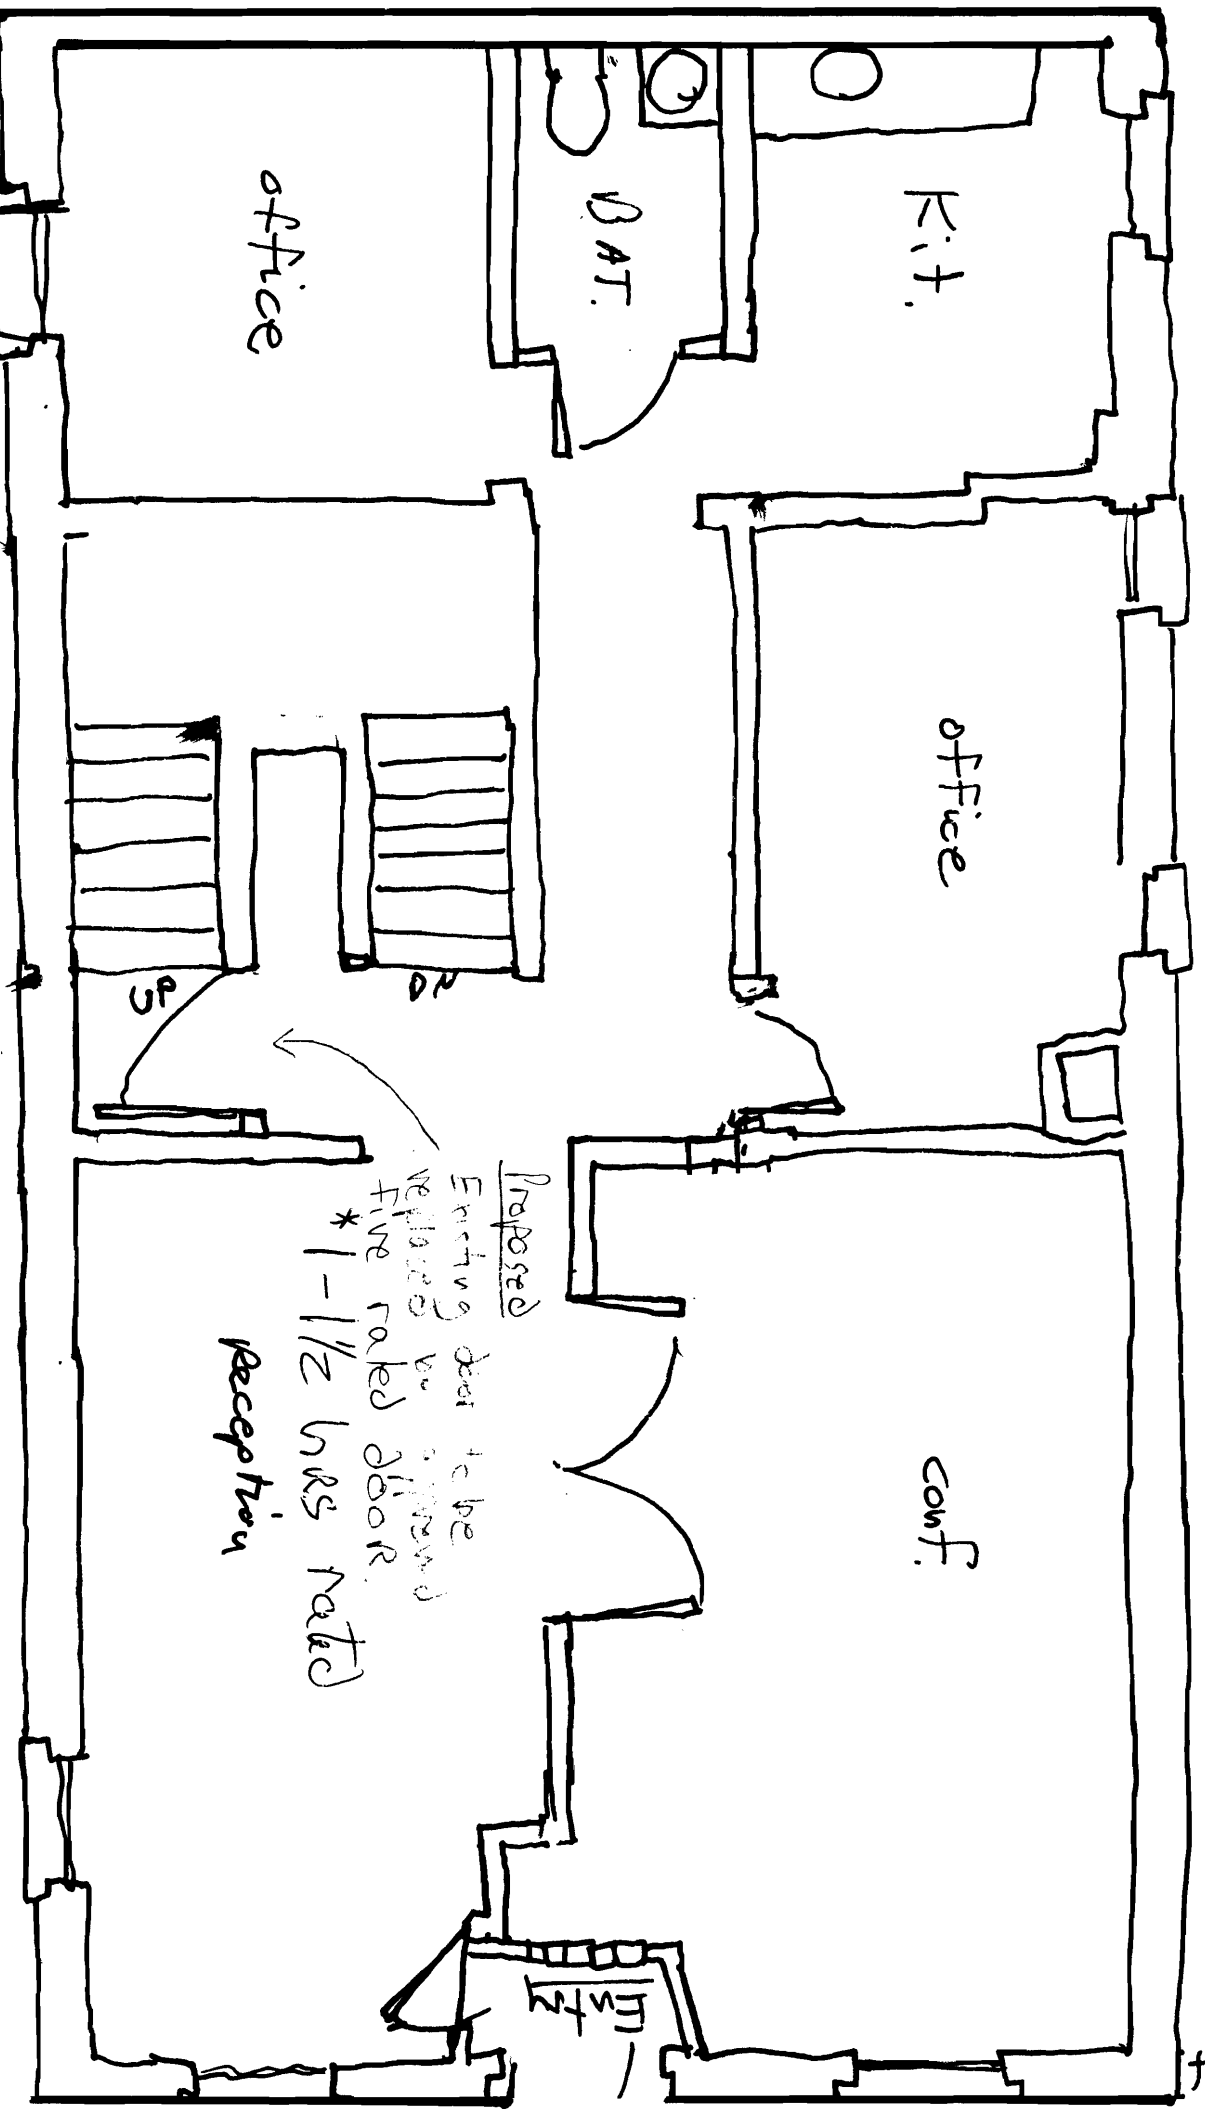 office
BAT.
Kit.
office
UP
DN
Proposed
Existing door to be
replaced w
fire rated door.
*1-1/2 hrs rated
Reception
conf.
Entry